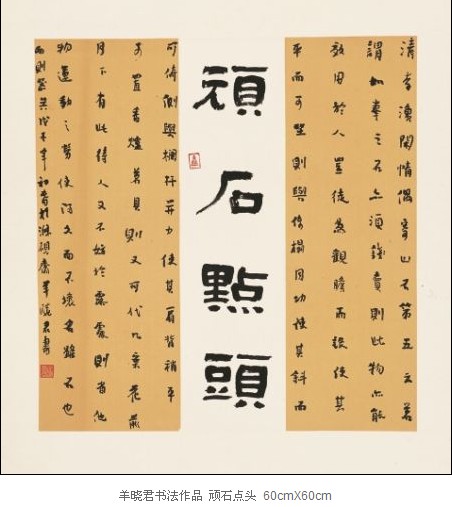 清李漁閒情偶寄山石第五云若
謂如拳之石亦須錢買則此物亦能
效用於人豈徒為觀瞻而設使其
平而可坐則與椅榻同功使其斜而
頑石點頭
可倚則與欄杆并力使其肩背稍平
可置香爐茗具則又可代几案花前
月下有此待人又不妨於露處則省他
物運動之勞使得久而不壞名雖石也
而則器矣戊子年初春於硯齋羊曉君書
羊晓君书法作品 顽石点头 60cmX60cm